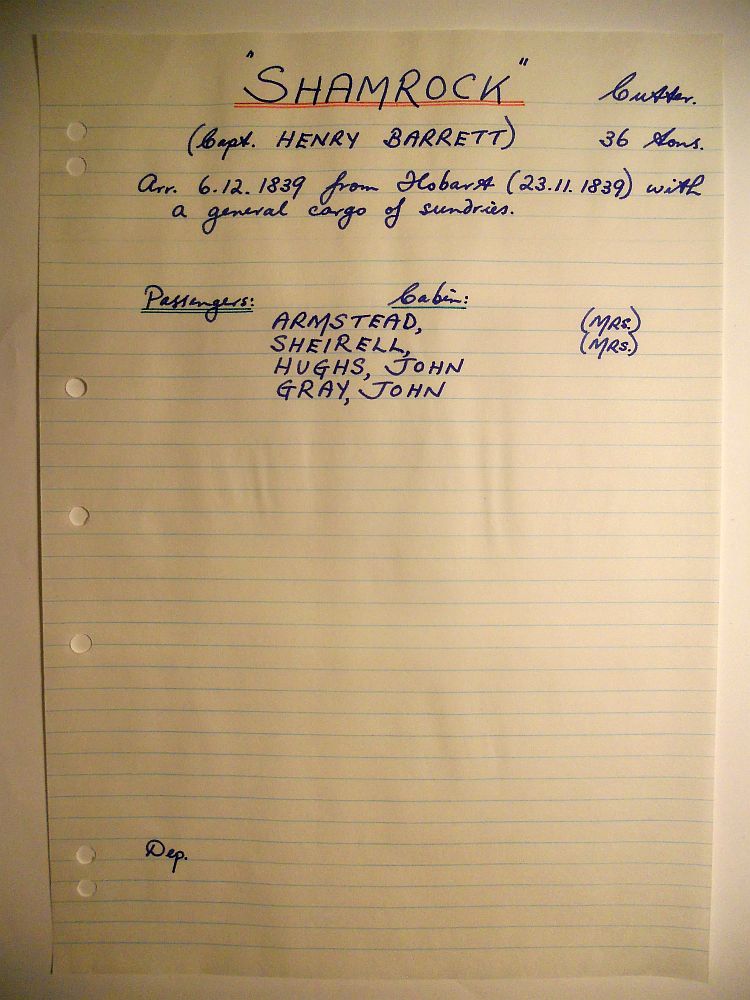 "SHAMROCK" Cutter.
(Capt. HENRY BARRETT) 36 tons.
Arr. 6.12.1839 from Hobart (23.11.1839) with
a general cargo of sundries.
Passengers: Cabin:
ARMSTEAD, (MRS.)
SHEIRELL, (MRS.)
HUGHS, JOHN
GRAY, JOHN
Dep.